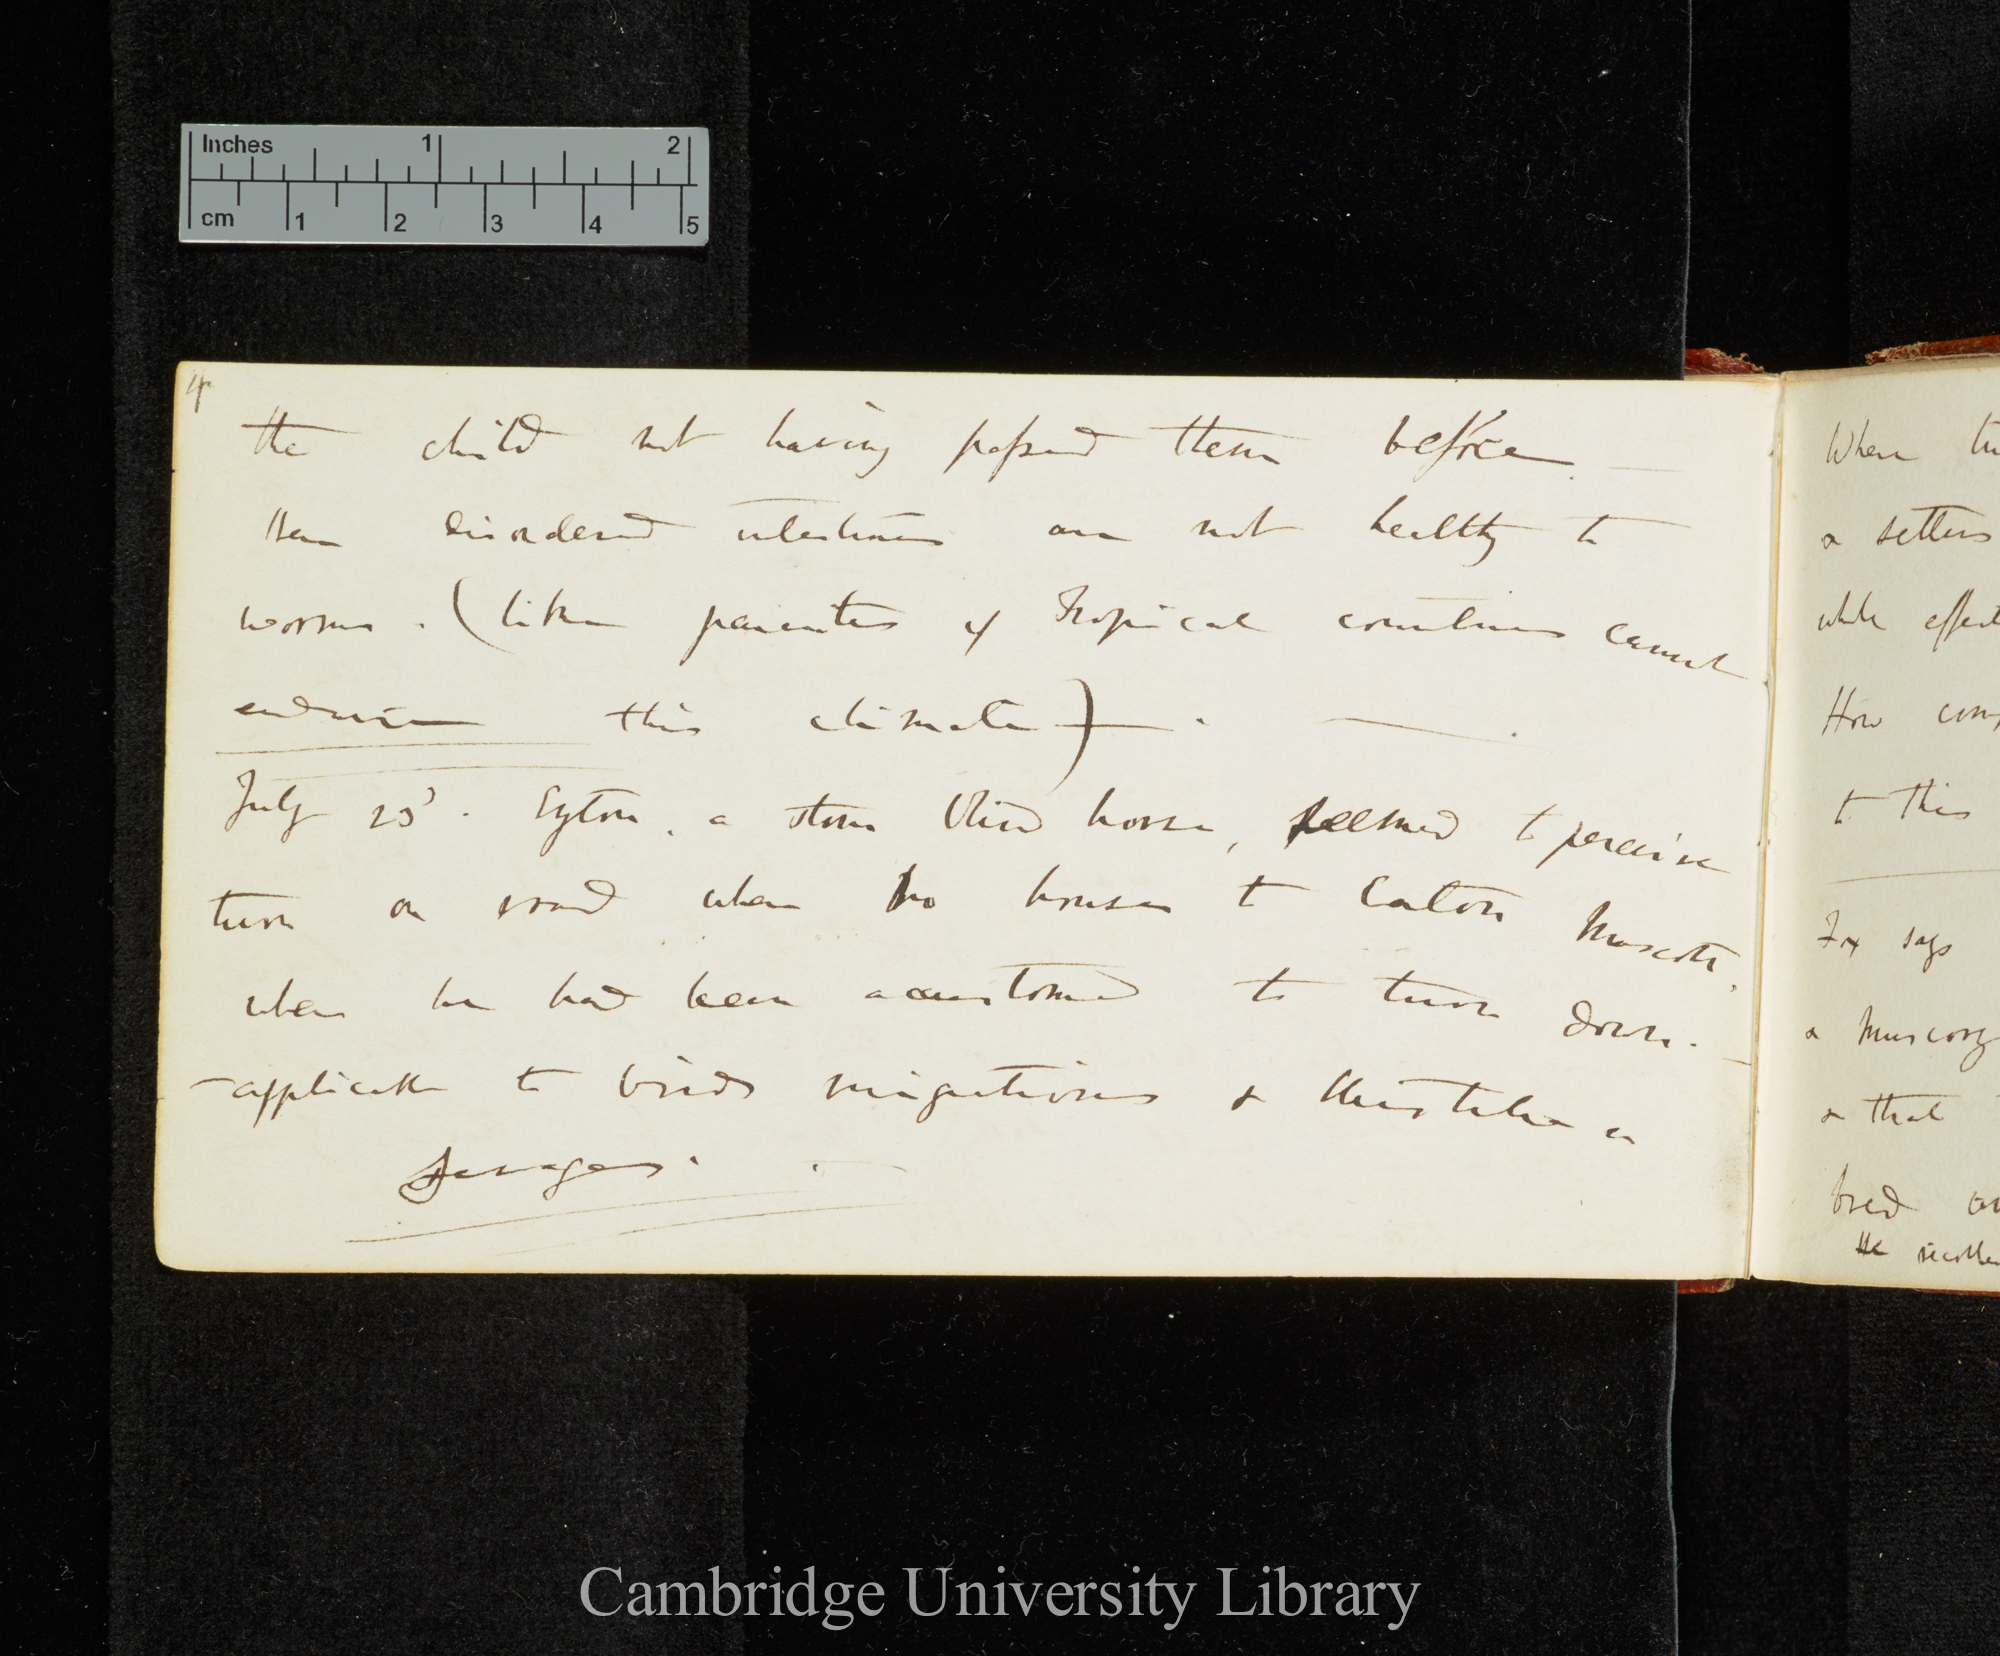 Inches 1 2
cm 1 2 3 4 5
4
the child not having passed them before. —
then disordered intestines are not healthy to
worms. (like parasites of Tropical countries cannot
endure this climate) —. —
July 23d. Eyton, a stone blind horse, seemed to perceive
turn on road when no houses to Eaton Mascott,
when he had been accustomed to turn down. —
applicable to birds migrations &
Savages. . —
When
& setters
while effect
How
to this
Fox says
& Muscovy
& that
bred
He
Cambridge University Library